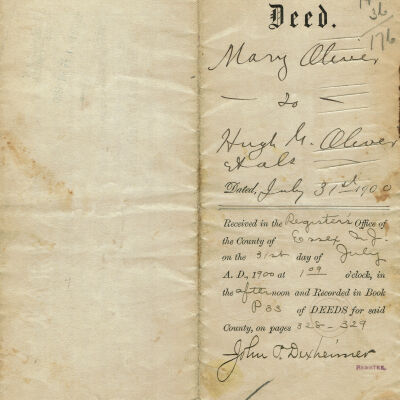 36
176
Deed.
Mary Oliver
— to —
Hugh G. Oliver
et als
Dated, July 31st 1900
Received in the Register's Office of
the County of Essex N.J.
on the 31st day of July
A. D., 1900 at 1 09 o'clock, in
the afternoon and Recorded in Book
P 33 of DEEDS for said
County, on pages 328-329
John P. Dexheimer
REGISTER.